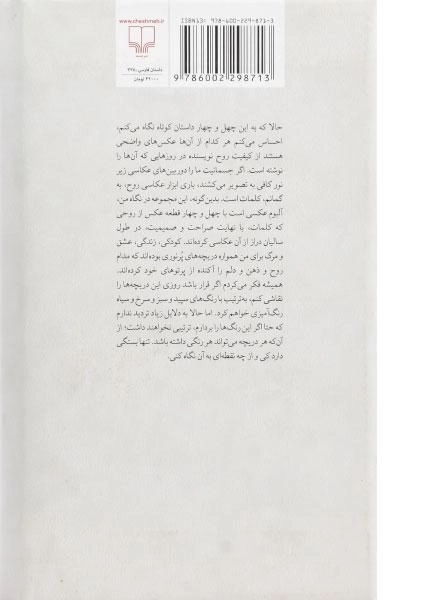 www.cheshmeh.ir
نشر چشمه
داستان فارسی
تومان
ISBN13: 978-600-229-871-3
9 786002 298713
حالا که به این چهل و چهار داستان کوتاه نگاه می‌کنم،
احساس می‌کنم هر کدام از آن‌ها عکس‌های واضحی
هستند از کیفیت روح نویسنده در روزهایی که آن‌ها را
نوشته است. اگر جسمانیت ما را دوربین‌های عکاسی زیر
نور کافی به تصویر می‌کشند، باری ابزار عکاسی روح، به
گمانم، کلمات است. بدین‌گونه، این مجموعه در نگاه من،
آلبوم عکسی است با چهل و چهار قطعه عکس از روحی
که کلمات، با نهایت صراحت و صمیمیت، در طول
سالیان دراز از آن عکاسی کرده‌اند. کودکی، زندگی، عشق
و مرگ برای من همواره دریچه‌های پُرنوری بوده‌اند که مدام
روح و ذهن و دلم را آکنده از پرتوهای خود کرده‌اند.
همیشه فکر می‌کردم اگر قرار باشد روزی این دریچه‌ها را
نقاشی کنم، به‌ترتیب با رنگ‌های سپید و سبز و سرخ و سیاه
رنگ‌آمیزی خواهم کرد. اما حالا به دلایل زیاد تردید ندارم
که حتا اگر این رنگ‌ها را بردارم، ترتیبی نخواهند داشت؛ از
آن‌که هر دریچه می‌تواند هر رنگی داشته باشد. تنها بستگی
دارد کی و از چه نقطه‌ای به آن نگاه کنی.